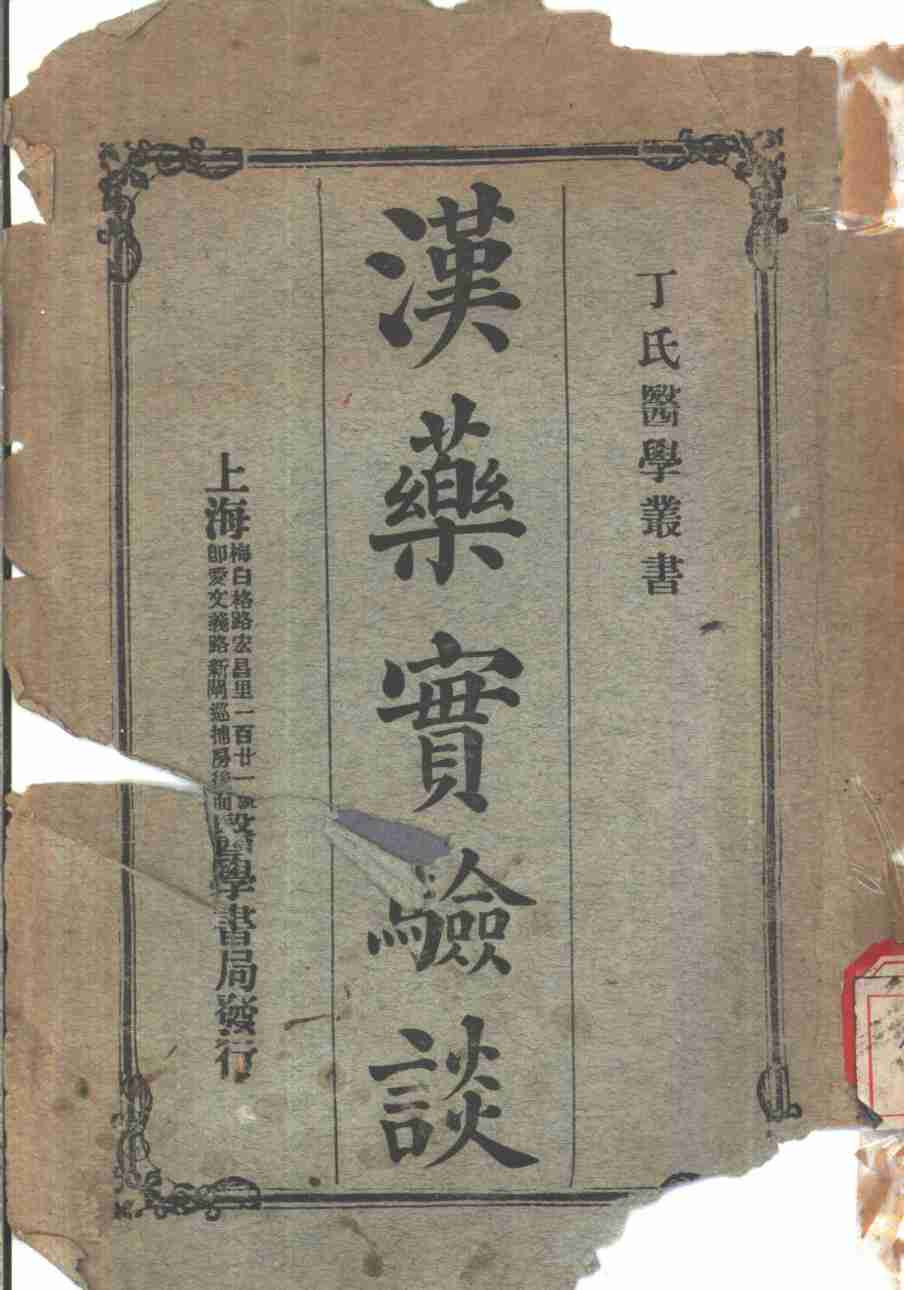 丁氏醫學叢書
漢藥實驗談
上海
梅白格路宏昌里一百廿一號
即愛文義路新閘巡捕房後面
醫學書局發行